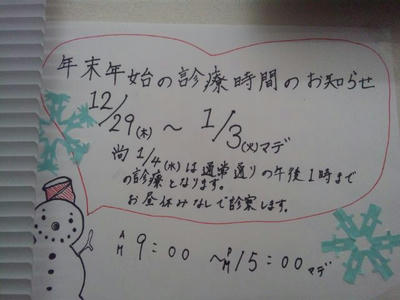 年末年始の診療時間のお知らせ
12/29(木)～1/3(火)マデ
尚1/4(水)は通常通りの午後1時まで
の診療となります。
お昼休みなしで診察します。
AM9:00～PM15:00マデ